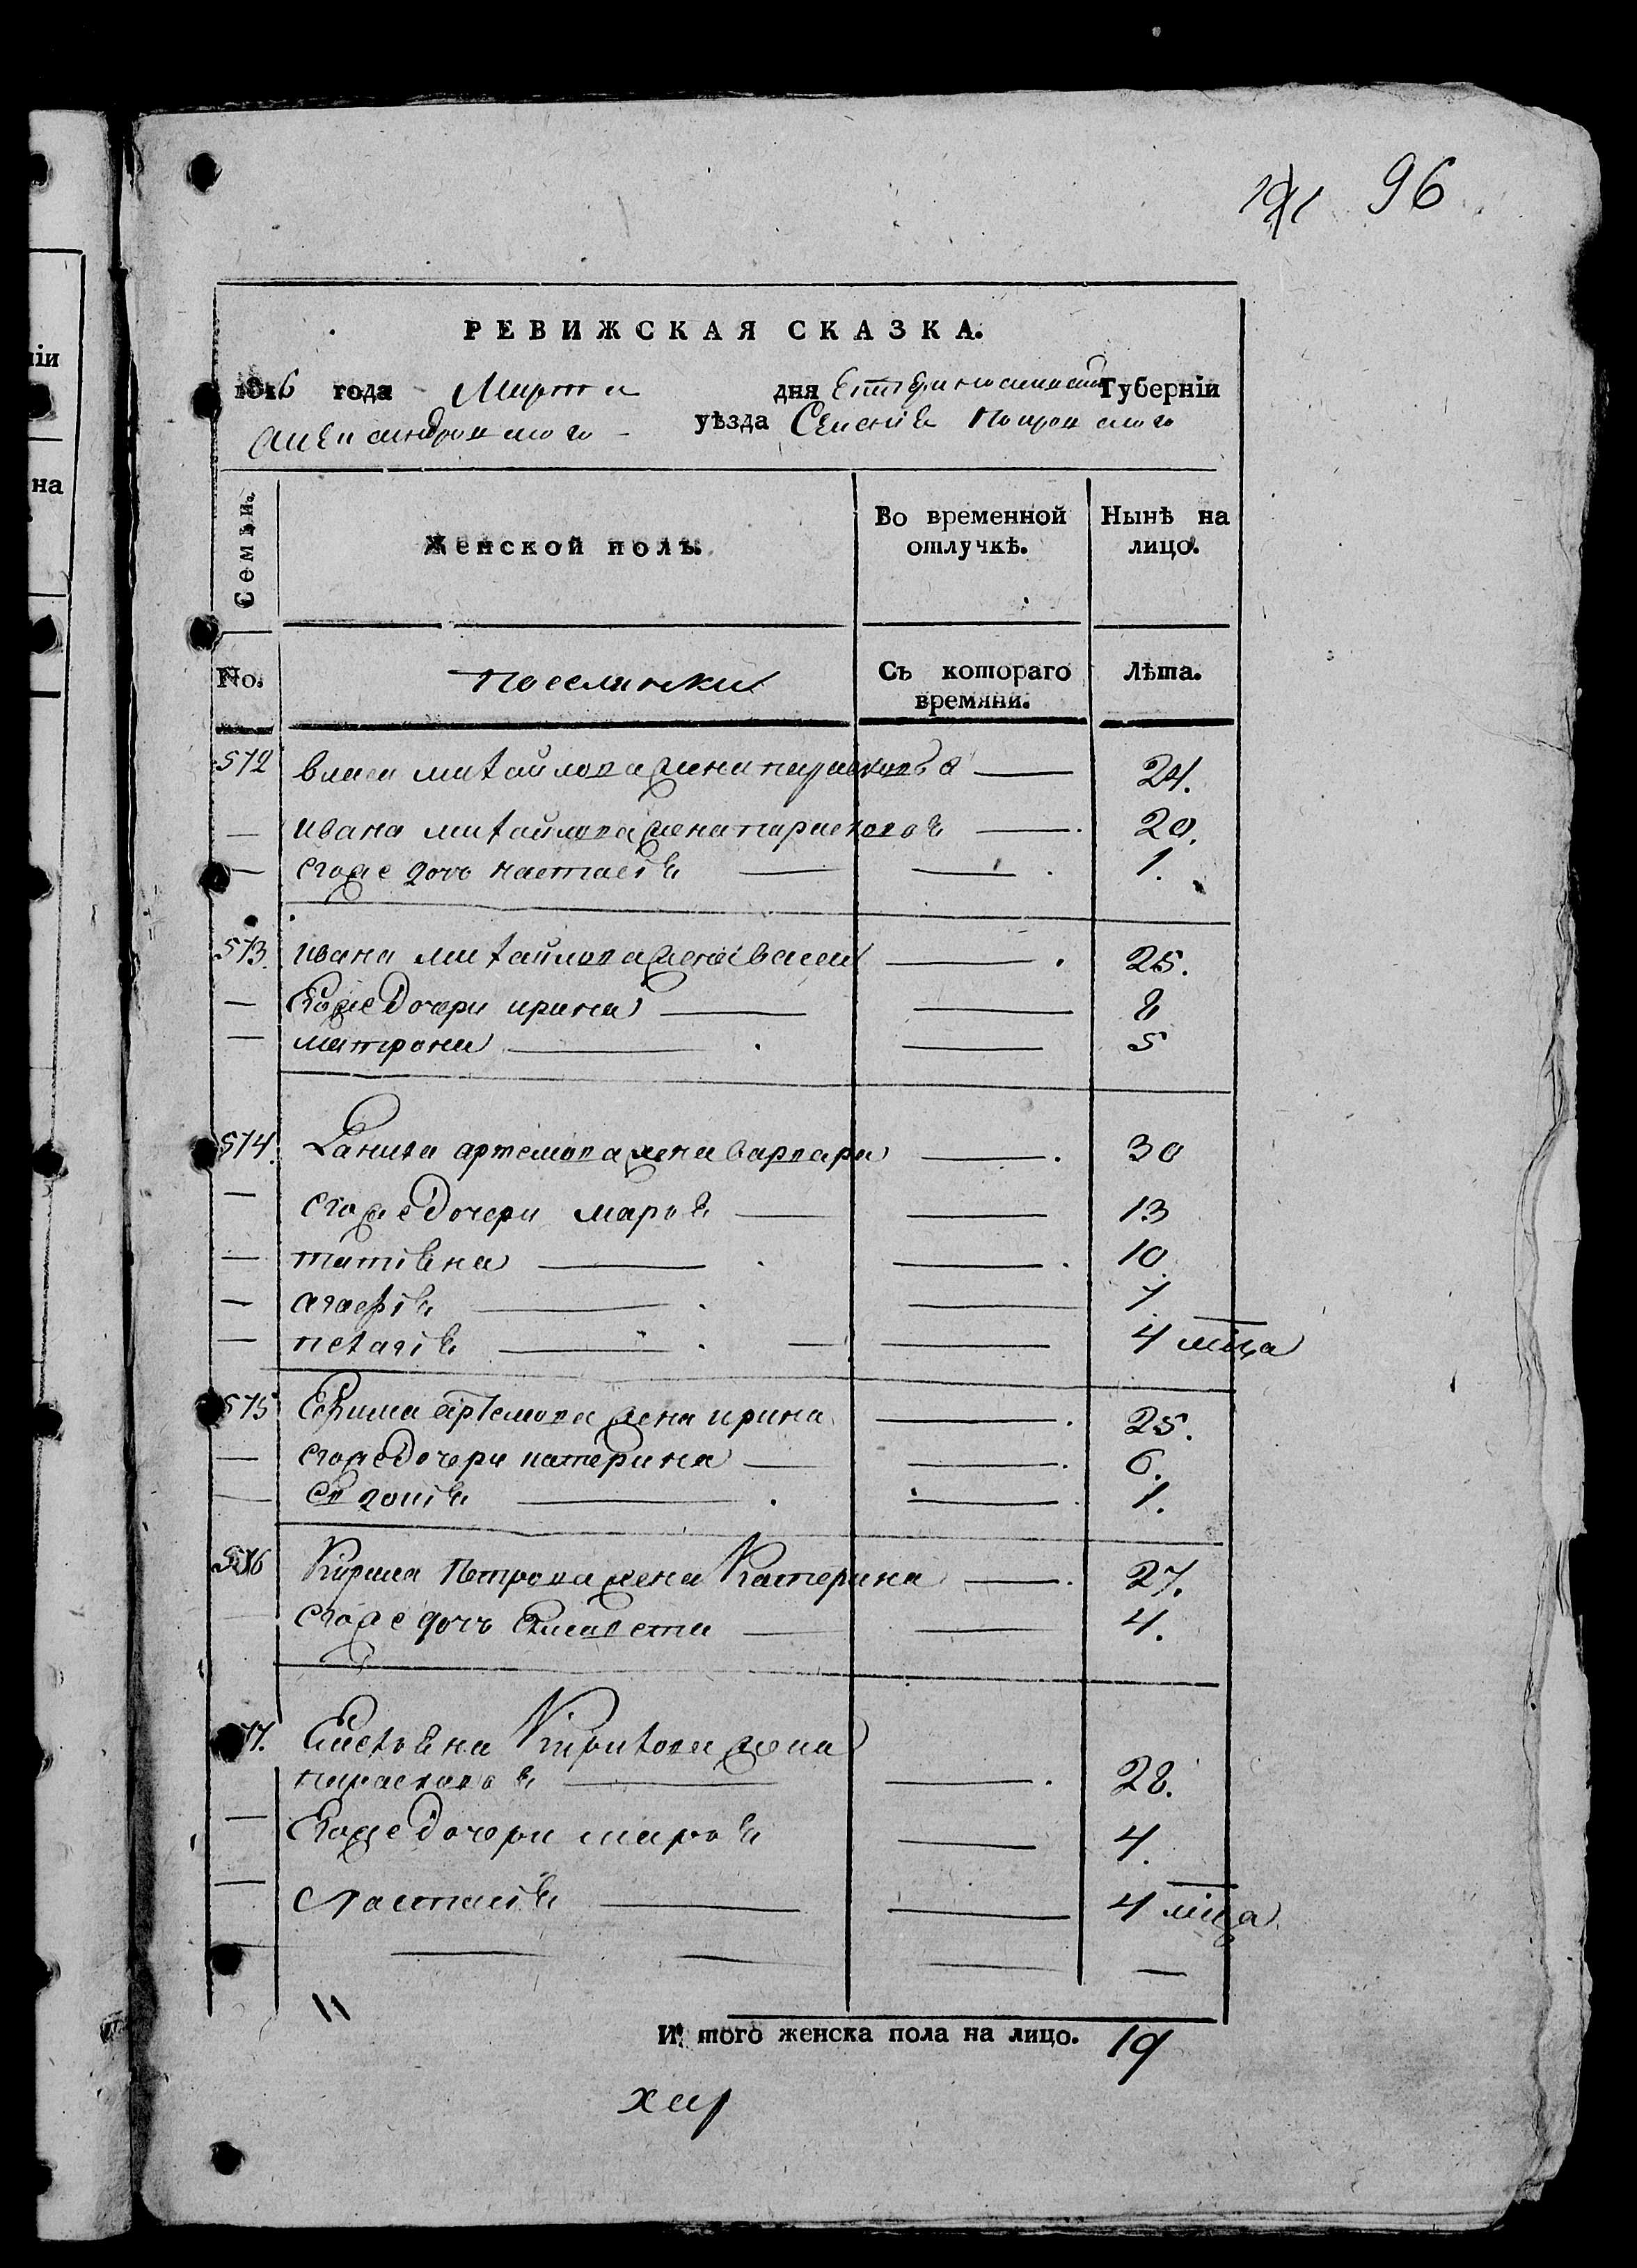 96
РЕВИЖСКАЯ СКАЗКА.
1816 года Марта дня Екатеринославской Губерніи
Александровского уѣзда Селенія Покровского
Семьи. Женской полъ. Во временной отлучкѣ. Нынѣ на лицо.
No. поселянки Съ котораго времяни. Лѣта.
572 власа михайлова жена парасковѣя 24.
— ивана михайлова жена парасковия — 20.
— егоже дочь настасія — — 1.
573. ивана михайлова жена — 25.
— Егоже Дочери ирина — — 8
— матрона — — 5
574. Данила артемова жена варвара — 30
— егоже Дочери марѳа — — 13
— татіяна — — 10
— агафія — — 7
— пелагія — — 4 мца
575 Ефима артемова жена ирина — 25.
— егоже Дочери катерина — — 6.
— евдокія — — 1.
576 Кирила Петрова жена Катерина — 27.
егоже дочь Елисавета — — 4.
77. Кирилова жена
парасковия — — 28.
— Егоже Дочери марѳа — 4.
— настасія — — 4 мца
И того женска пола на лицо. 19